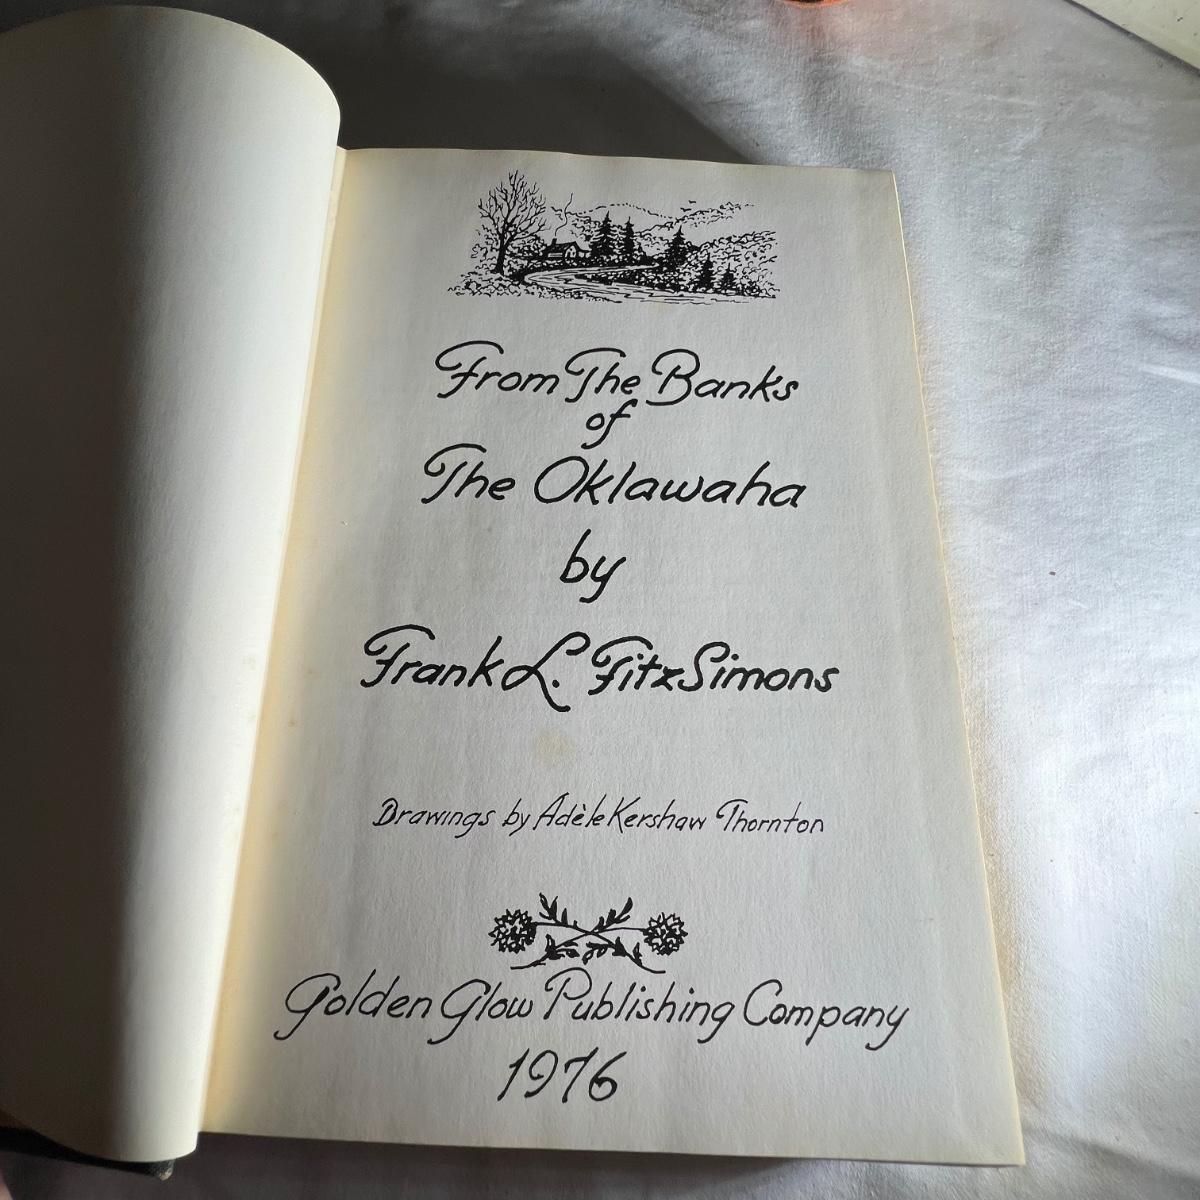 From The Banks
of
The Oklawaha
by
Frank L. FitzSimons
Drawings by Adèle Kershaw Thornton
Golden Glow Publishing Company
1976